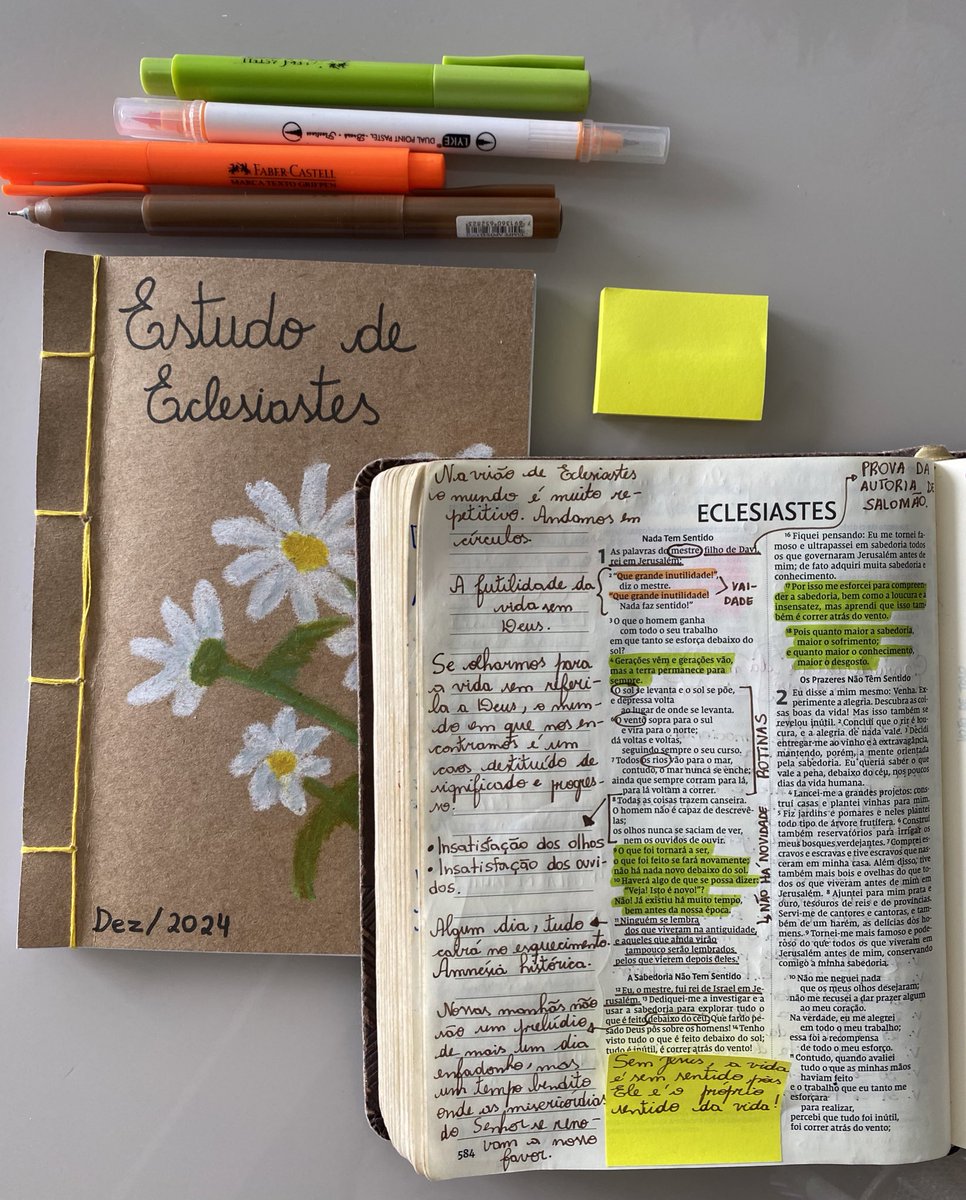 LYKE DUAL POINT PASTEL
FABER-CASTELL
MARCA TEXTO GRIFPEN
Estudo de
Eclesiastes
Dez/2024
Na visão de Eclesiastes
o mundo é muito re-
petitivo. Andamos em
círculos.
A futilidade da
vida sem
Deus.
Se olharmos para
a vida sem referi-
la a Deus, o mun-
do em que nos en-
contramos é um
caos destituído de
significado e progres-
so.
•Insatisfação dos olhos
•Insatisfação dos ouvi-
dos.
Algum dia, tudo
cairá no esquecimento.
Amnésia histórica.
Nossas manhãs não
são um prelúdio
de mais um dia
enfadonho, mas
um tempo bendito
onde as misericórdias
do Senhor se reno-
vam a nosso
favor.
584
PROVA DA
AUTORIA DE
SALOMÃO.
ECLESIASTES
Nada Tem Sentido
1 As palavras do mestre, filho de Davi,
rei em Jerusalém:
2 "Que grande inutilidade!",
diz o mestre.
"Que grande inutilidade!
Nada faz sentido!"
VAI-
DADE
3 O que o homem ganha
com todo o seu trabalho
em que tanto se esforça debaixo do
sol?
4 Gerações vêm e gerações vão,
mas a terra permanece para
sempre.
5 O sol se levanta e o sol se põe,
e depressa volta
ao lugar de onde se levanta.
6 O vento sopra para o sul
e vira para o norte;
dá voltas e voltas,
seguindo sempre o seu curso.
7 Todos os rios vão para o mar,
contudo, o mar nunca se enche;
ainda que sempre corram para lá,
para lá voltam a correr.
ROTINAS
8 Todas as coisas trazem canseira.
O homem não é capaz de descrevê-
las;
os olhos nunca se saciam de ver,
nem os ouvidos de ouvir.
9 O que foi tornará a ser,
o que foi feito se fará novamente;
não há nada novo debaixo do sol.
10 Haverá algo de que se possa dizer:
"Veja! Isto é novo!"?
Não! Já existiu há muito tempo,
bem antes da nossa época.
NÃO HÁ NOVIDADE
11 Ninguém se lembra
dos que viveram na antiguidade,
e aqueles que ainda virão
tampouco serão lembrados
pelos que vierem depois deles.
A Sabedoria Não Tem Sentido
12 Eu, o mestre, fui rei de Israel em Je-
rusalém. 13 Dediquei-me a investigar e a
usar a sabedoria para explorar tudo o
que é feito debaixo do céu. Que fardo pe-
sado Deus pôs sobre os homens! 14 Tenho
visto tudo o que é feito debaixo do sol;
tudo é inútil, é correr atrás do vento!
Sem Jesus, a vida
é sem sentido pois
Ele é o próprio
sentido da vida!
16 Fiquei pensando: Eu me tornei fa-
moso e ultrapassei em sabedoria todos
os que governaram Jerusalém antes de
mim; de fato adquiri muita sabedoria e
conhecimento.
17 Por isso me esforcei para compreen-
der a sabedoria, bem como a loucura e a
insensatez, mas aprendi que isso tam-
bém é correr atrás do vento.
18 Pois quanto maior a sabedoria,
maior o sofrimento;
e quanto maior o conhecimento,
maior o desgosto.
Os Prazeres Não Têm Sentido
2 Eu disse a mim mesmo: Venha. Ex-
perimente a alegria. Descubra as coi-
sas boas da vida! Mas isso também se
revelou inútil. 2 Concluí que o rir é lou-
cura, e a alegria de nada vale. 3 Decidi
entregar-me ao vinho e à extravagância,
mantendo, porém, a mente orientada
pela sabedoria. Eu queria saber o que
vale a pena, debaixo do céu, nos poucos
dias da vida humana.
4 Lancei-me a grandes projetos: cons-
truí casas e plantei vinhas para mim.
5 Fiz jardins e pomares e neles plantei
todo tipo de árvore frutífera. 6 Construí
também reservatórios para irrigar os
meus bosques verdejantes. 7 Comprei es-
cravos e escravas e tive escravos que nas-
ceram em minha casa. Além disso, tive
também mais bois e ovelhas do que to-
dos os que viveram antes de mim em
Jerusalém. 8 Ajuntei para mim prata e
ouro, tesouros de reis e de províncias.
Servi-me de cantores e cantoras, e tam-
bém de um harém, as delícias dos ho-
mens. 9 Tornei-me mais famoso e pode-
roso do que todos os que viveram em
Jerusalém antes de mim, conservando
comigo a minha sabedoria.
10 Não me neguei nada
que os meus olhos desejaram;
não me recusei a dar prazer algum
ao meu coração.
Na verdade, eu me alegrei
em todo o meu trabalho;
essa foi a recompensa
de todo o meu esforço.
11 Contudo, quando avaliei
tudo o que as minhas mãos
haviam feito
e o trabalho que eu tanto me
esforçara
para realizar,
percebi que tudo foi inútil,
foi correr atrás do vento;